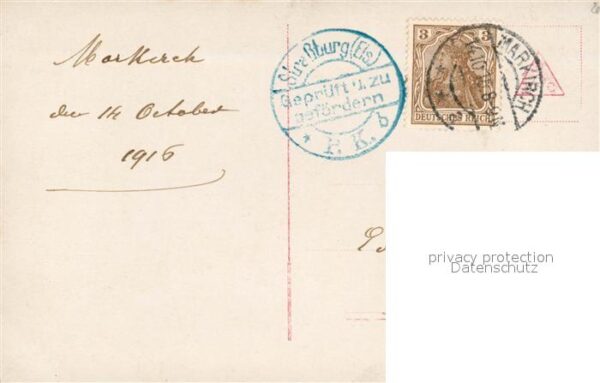 Markirch
den 14 October
1916
Straßburg (Els)
Geprüft u. zu
befördern
P. K. b
3 3
DEUTSCHES REICH
MARKIRCH
privacy protection
Datenschutz